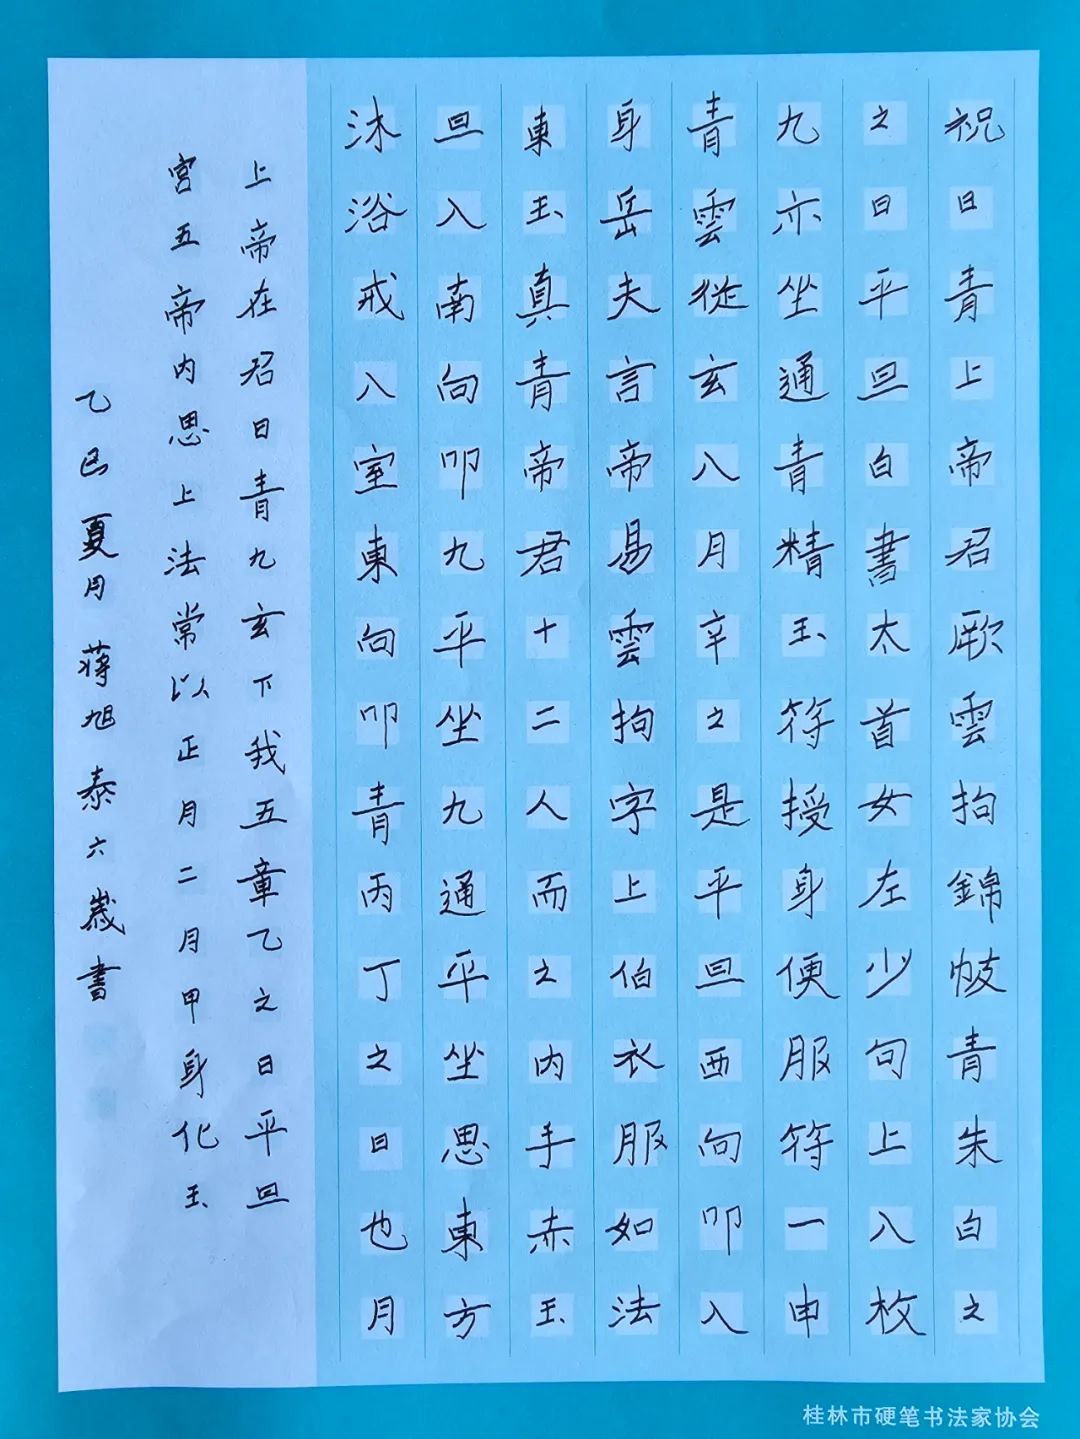 祝日青上帝君歌雲拘錦帔青朱白之
之日平旦白書太首女左少句上入枚
九亦坐通青精玉符授身便服符一申
青雲從玄八月辛之是平旦西向叩入
身岳夫言帝易雲拘字上伯衣服如法
東玉真青帝君十二人而之内手赤玉
旦入南向叩九平坐九通平坐思東方
沐浴戒入室東向叩青丙丁之日也月
上帝在君日青九玄下我五章乙之日平旦
宫五帝内思上法常以正月二月甲身化玉
乙巳夏月蒋旭泰六歲書
桂林市硬笔书法家协会